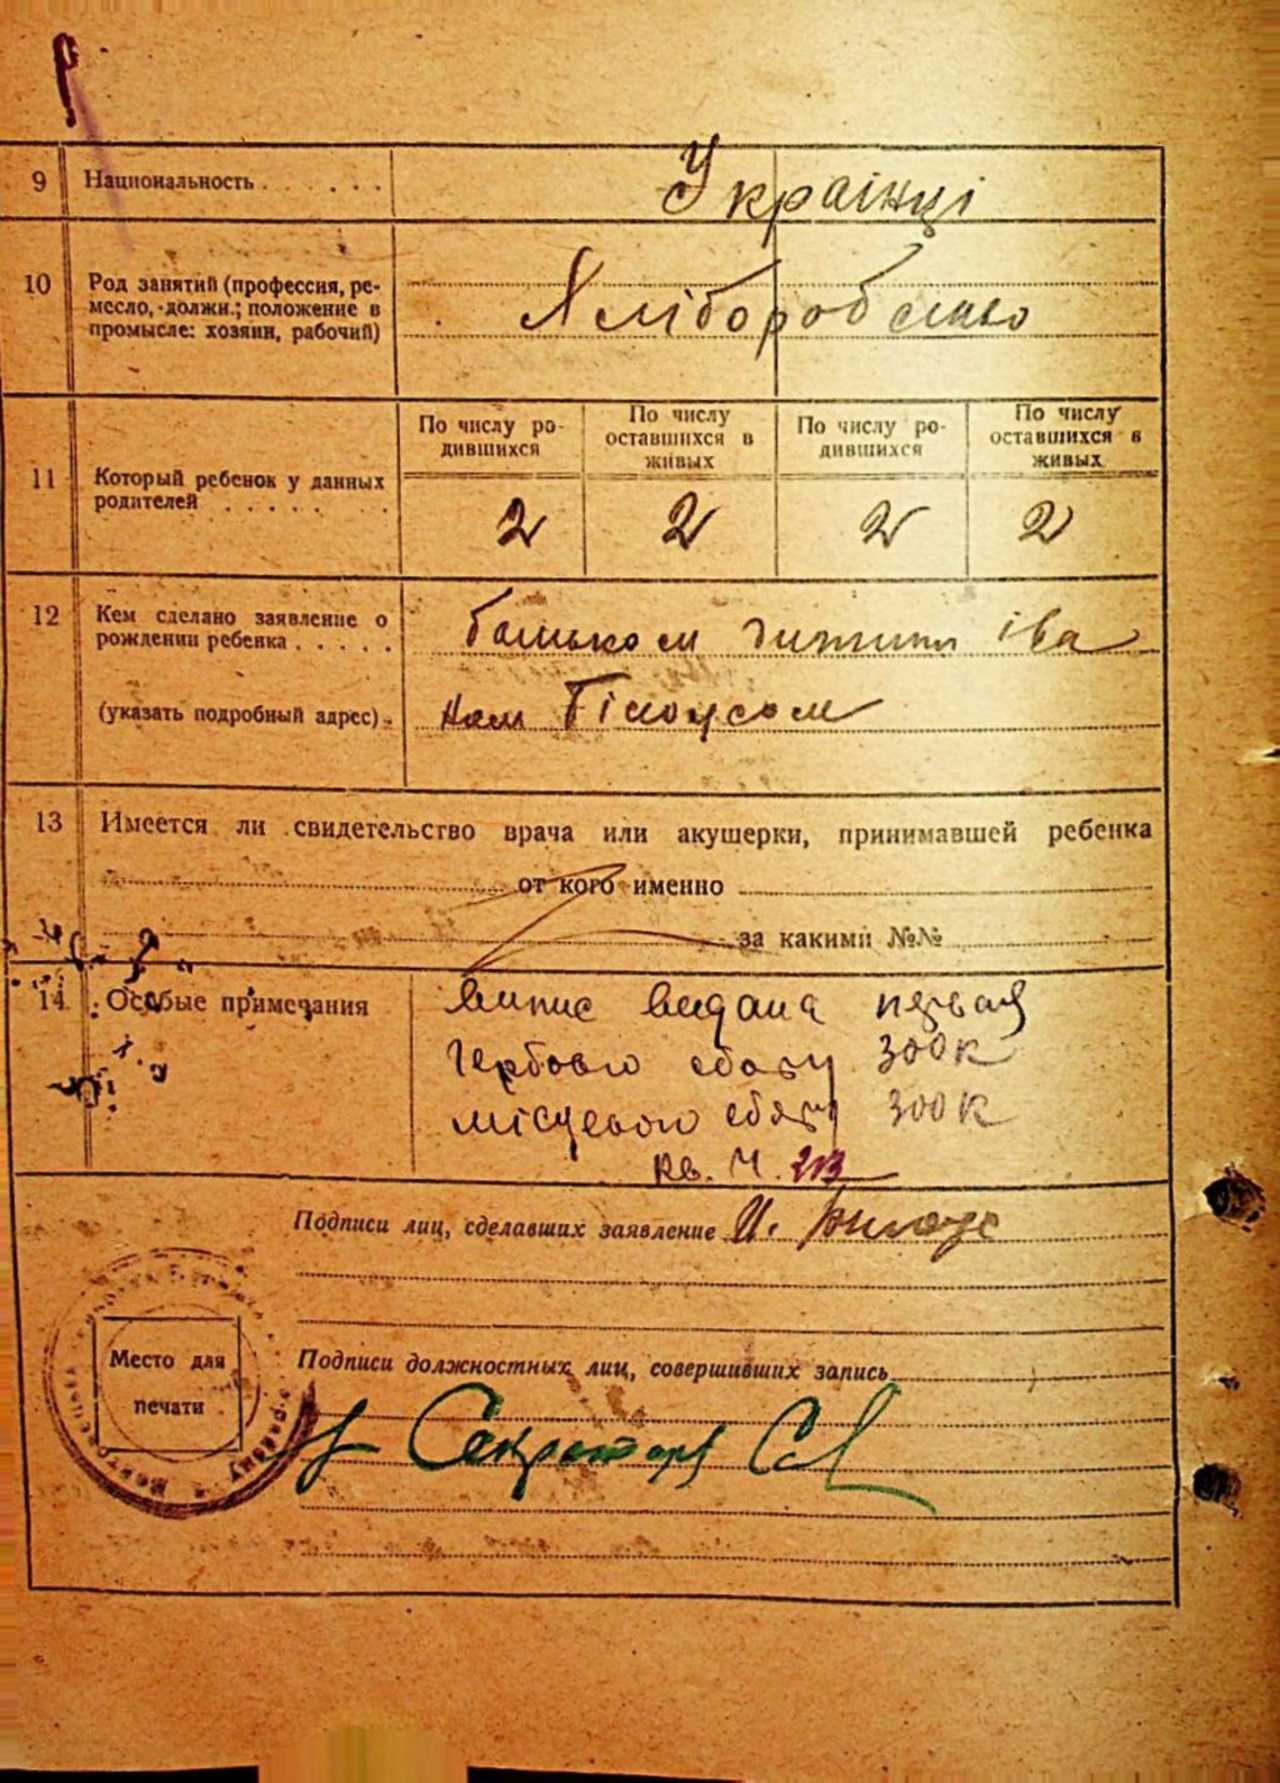 9 Национальность . . . . . . Українці
10 Род занятий (профессия, ре-
месло, должн.; положение в
промысле: хозяин, рабочий)
Хліборобство
11 Который ребенок у данных
родителей . . . . . . .
По числу ро-
дившихся
По числу
оставшихся в
живых
По числу ро-
дившихся
По числу
оставшихся в
живых
2 2 2 2
12 Кем сделано заявление о
рождении ребенка . . . . .
(указать подробный адрес) .
батьком дитини Іва
ном Білоусом
13 Имеется ли свидетельство врача или акушерки, принимавшей ребенка
от кого именно
за какими №№
14 Особые примечания
випис видана первая
гербового збору 300к
місцевого збору 300к
кв. Ч. 213
Подписи лиц, сделавших заявление И. Билоус
Место для
печати
Подписи должностных лиц, совершивших запись
Секретарь